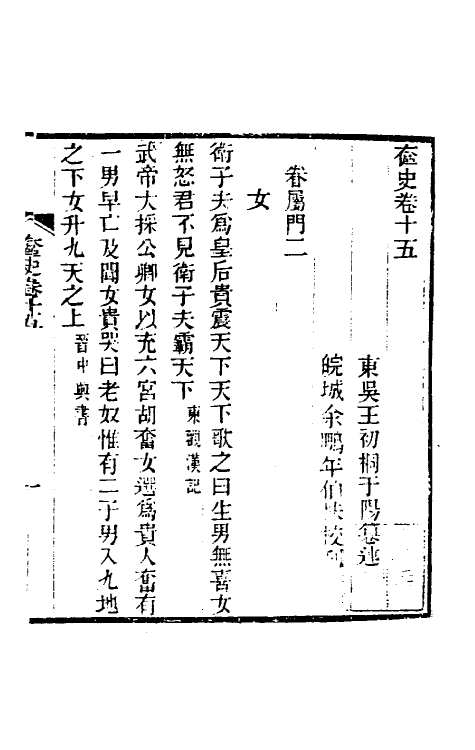 奩史卷十五
東吳王初桐于陽纂述
皖城余鵬年伯扶校刊
眷屬門二
女
衛子夫爲皇后貴震天下天下歌之曰生男無喜女
無怒君不見衛子夫霸天下東觀漢記
武帝大採公卿女以充六宮胡奮女選爲貴人奮有
一男早亡及聞女貴哭曰老奴惟有二子男入九地
之下女升九天之上晉中興書
奩史卷十五
一